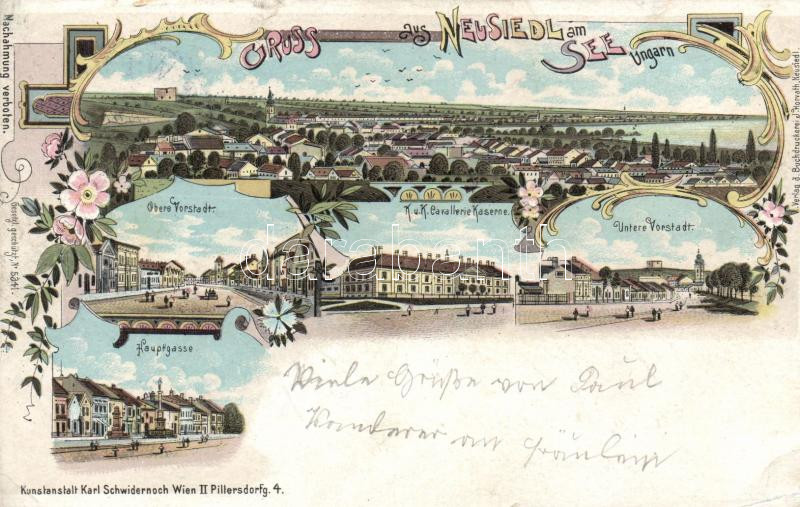 GRUSS aus NEUSIEDL am SEE
Ungarn
Nachahmung verboten.
Obere Vorstadt.
K. u. K. Cavallerie Kaserne.
Untere Vorstadt.
darabanth
Hauptgasse
Viele Grüße von Paul
an Fräulein
Kunstanstalt Karl Schwidernoch Wien II Pillersdorfg. 4.
Gesetzl. geschützt, Nº 5041.
Verlag d. Buchdruckerei